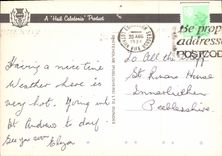 A 'Hail Caledonia' Product
20 AUG
Be prop
addresse
POSTCOD
Having a nice time
Weather here is
very hot. Going up
St Andrews to day.
See you soon Elysa
To All the
St Ronans House
Innerleithen
Peeblesshire